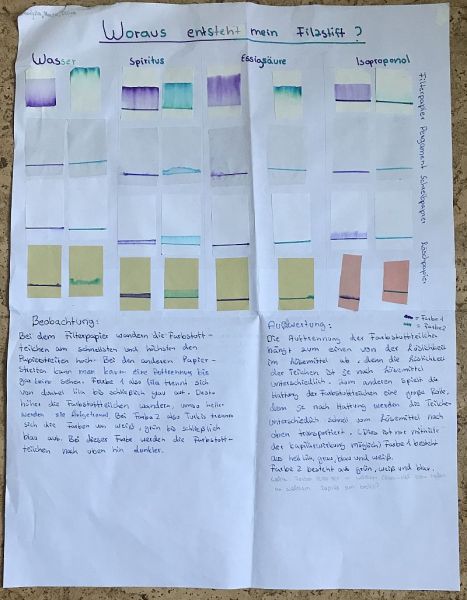 Woraus entsteht mein Filzstift?
Wasser
Spiritus
Essigsäure
Isopropanol
Filterpapier
Pergament
Schreibpapier
Löschpapier
= Farbe 1
= Farbe 2
Beobachtung:
Bei dem Filterpapier wandern die Farbstoff-
teilchen am schnellsten und höchsten den
Papierstreifen hoch. Bei den anderen Papier-
streifen kann man kaum eine Auftrennung bis
gar keine sehen. Farbe 1 also lila trennt sich
von dunkel lila bis schließlich grau auf. Desto
höher die Farbstoffteilchen wandern, umso heller
werden sie
Bei Farbe 2 also Türkis trennen
sich die Farben von weiß, grün bis schließlich
blau auf. Bei dieser Farbe werden die Farbstoff-
teilchen nach oben hin dunkler.
Außwertung:
Die Auftrennung der Farbstoffteilchen
hängt zum einen von der Löslichkeit
im Lösemittel ab, denn die Löslichkeit
der Teilchen ist je nach Lösemittel
unterschiedlich. Zum anderen spielt die
Haftung der Farbstoffteilchen eine große Rolle,
denn je nach Haftung werden die Teilchen
unterschiedlich schnell vom Lösemittel nach
oben transportiert. (Dies ist nur mithilfe
der Kapillarwirkung möglich) Farbe 1 besteht
aus hell lila, grau, blau und weiß.
Farbe 2 besteht aus grün, weiß und blau.